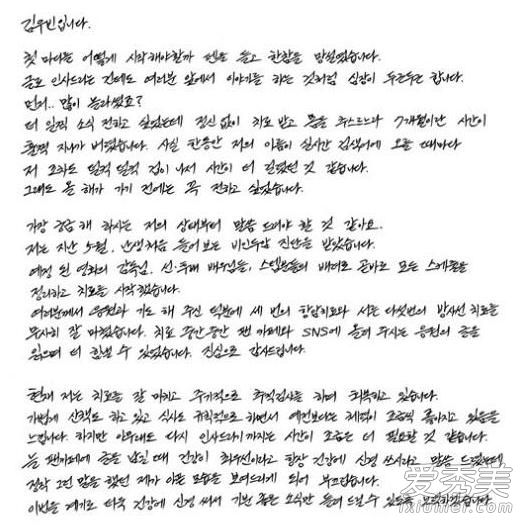 김우빈입니다.
첫 마디는 어떻게 시작해야할까 펜을 들고 한참을 망설였습니다.
글로 인사드리는 건데도 여러분 앞에서 이야기를 하는 것처럼 심장이 두근두근 합니다.
먼저.. 많이 놀라셨죠?
더 일찍 소식 전하고 싶었는데 정신 없이 치료 받고 몸을 추스르느라 7개월이란 시간이
훌쩍 지나가 버렸습니다. 사실 한동안 저의 이름이 실시간 검색어에 오를 때마다
저 조차도 덜컥 덜컥 겁이 나서 시간이 더 걸렸던 것 같습니다.
그래도 올 해가 가기 전에는 꼭 전하고 싶었습니다.
가장 궁금해 하시는 저의 상태부터 말씀 드려야 할 것 같아요.
저는 지난 5월, 난생처음 들어보는 비인두암 진단을 받았습니다.
예정 된 영화의 감독님, 선·후배 배우님들, 스텝분들의 배려로 곧바로 모든 스케줄을
정리하고 치료를 시작했습니다.
여러분께서 응원과 기도 해 주신 덕분에 세 번의 항암치료와 서른 다섯번의 방사선 치료를
무사히 잘 마쳤습니다. 치료 중간중간 팬 카페와 SNS에 올려 주시는 응원의 글을
읽으며 더 힘낼 수 있었습니다. 진심으로 감사드립니다.
현재 저는 치료를 잘 마치고 주기적으로 추적검사를 하며 회복하고 있습니다.
가볍게 산책도 하고 있고 식사도 규칙적으로 하면서 예전보다는 체력이 조금씩 좋아지고 있음을
느낍니다. 하지만 아무래도 다시 인사드리기까지는 시간이 조금은 더 필요할 것 같습니다.
늘 팬카페에 글을 남길 때 건강이 최우선이라고 항상 건강에 신경 쓰시라고 말씀 드렸는데
정작 그런 말을 했던 제가 아픈 모습을 보여드리게 되어 부끄럽습니다.
이번을 계기로 더욱 건강에 신경 써서 기분 좋은 소식만 들려 드릴 수 있도록 노력하겠습니다.
爱秀美